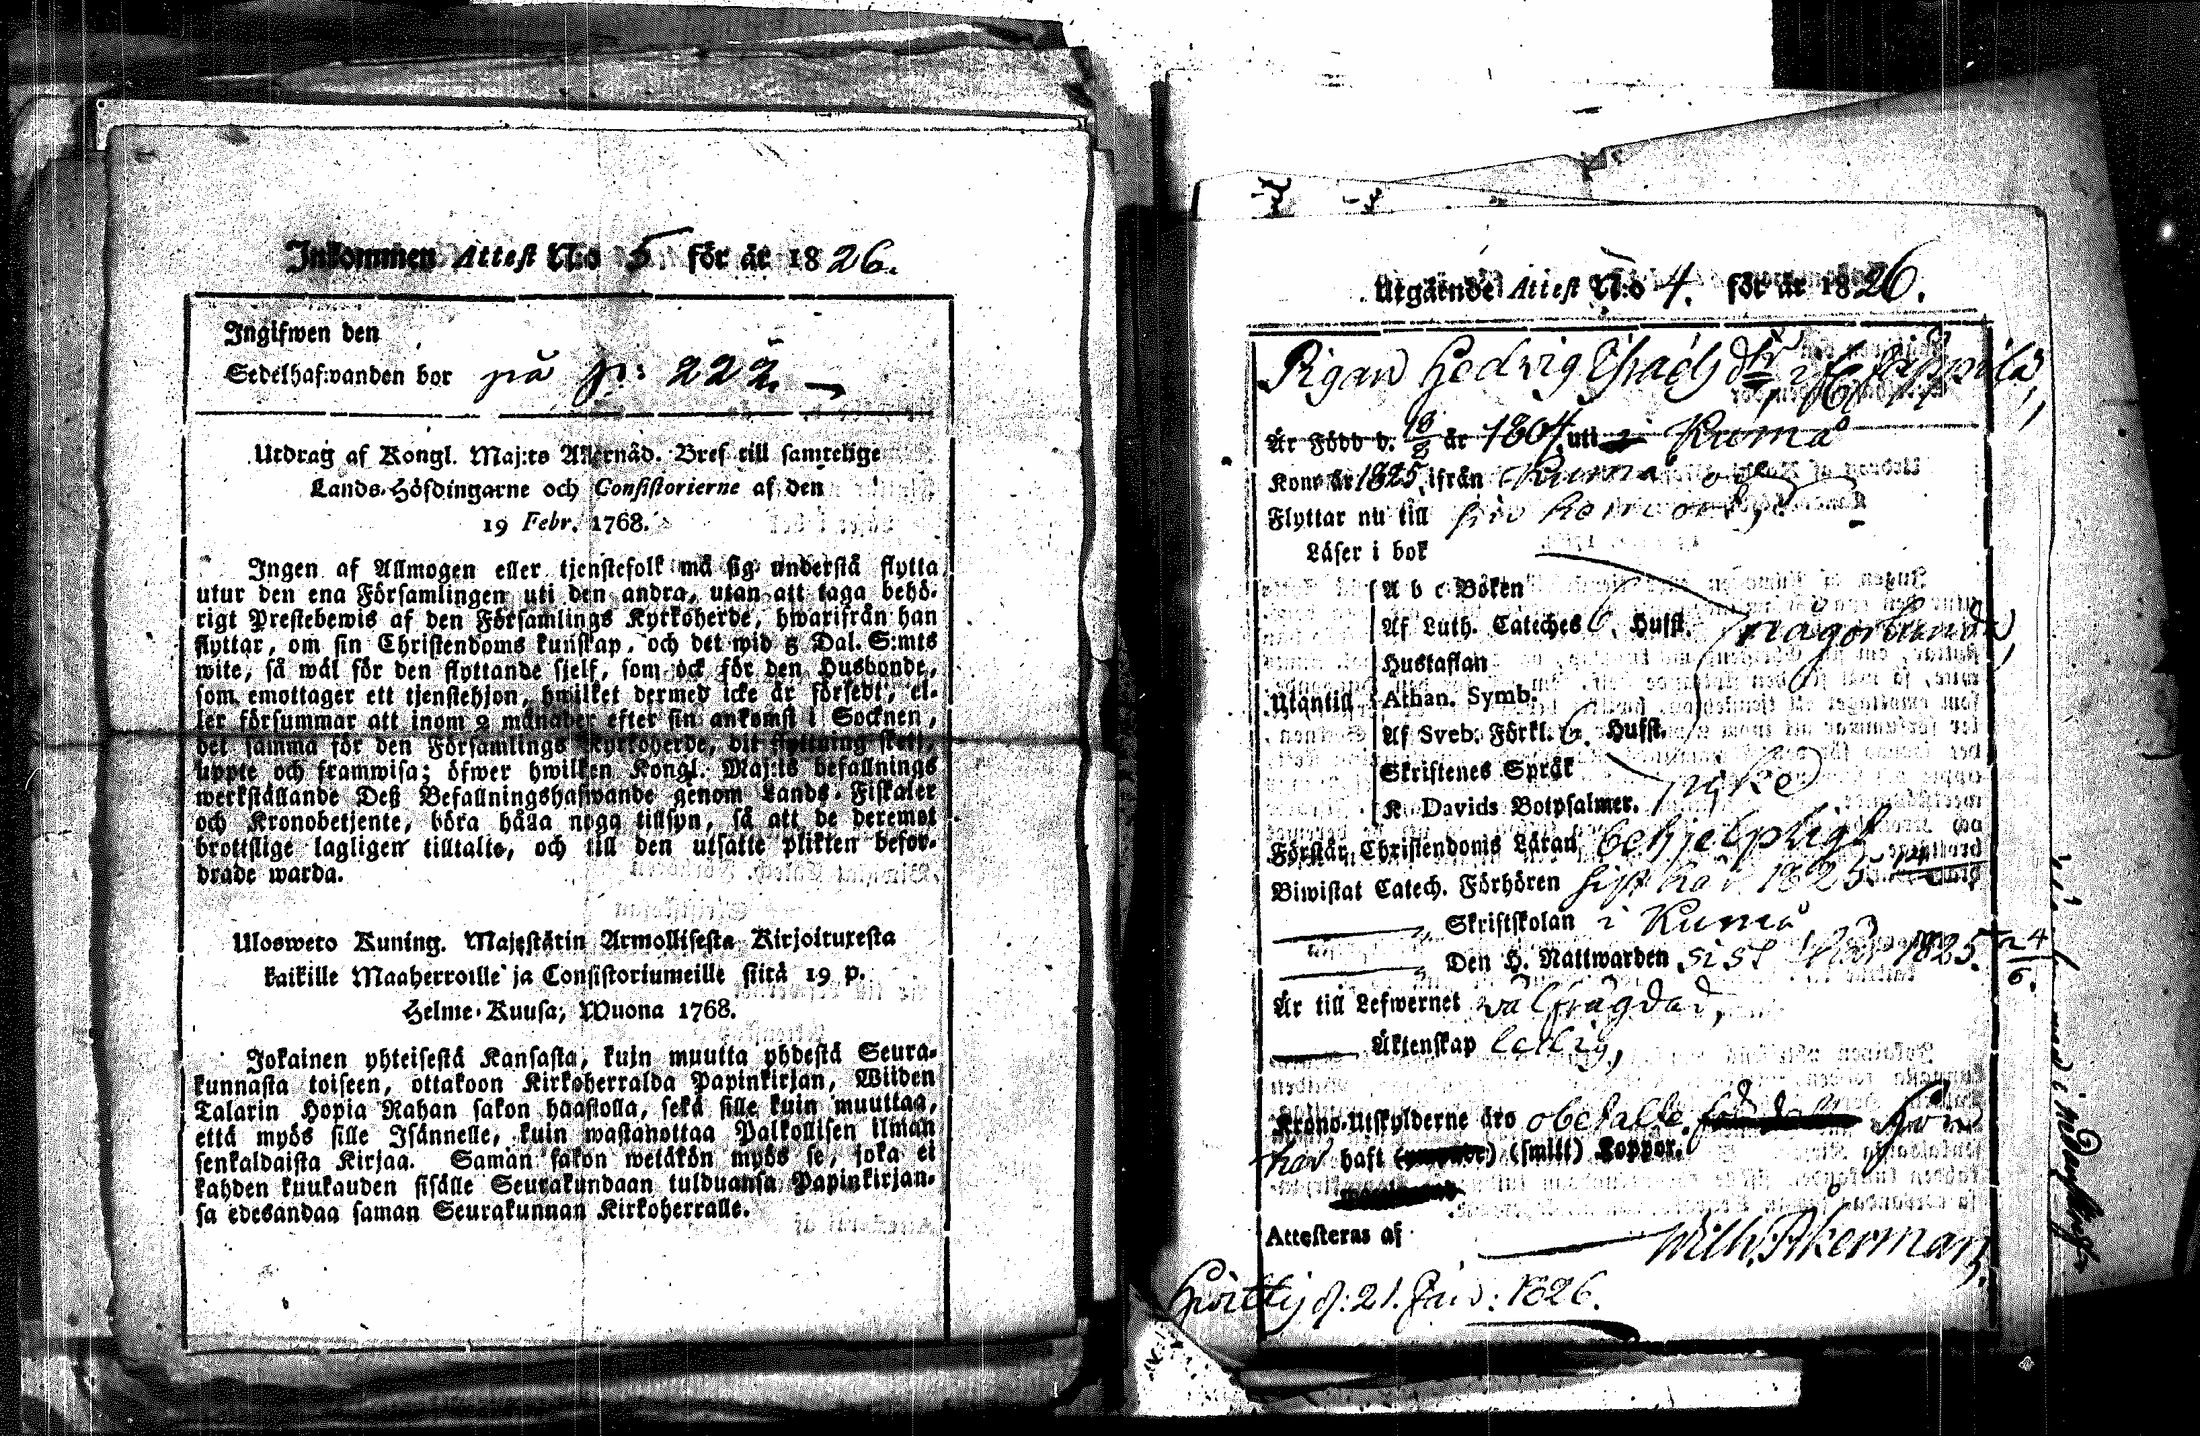 Inkommen Attest N:o 5 för år 1826.
Ingifwen den
Sedelhafwanden bor på p: 222.
Utdrag af Kongl. Maj:ts Allernåd. Bref till samtelige
Lands-Höfdingarne och Consistorierne af den
19 Febr. 1768.
Ingen af Allmogen eller tjenstefolk må sig understå flytta
utur den ena Församlingen uti den andra, utan att taga behö-
rigt Prestebewis af den Församlings Kyrkoherde, hwarifrån han
flyttar, om sin Christendoms kunskap, och det wid 5 Dal. S:mts
wite, så wäl för den flyttande sjelf, som ock för den Husbonde,
som emottager ett tjenstehjon, hwilket dermed icke är försedt, el-
ler försummar att inom 2 månader efter sin ankomst i Socknen,
det samma för den Församlings Kyrkoherde, dit flyttning skett,
uppte och framwisa; öfwer hwilken Kongl. Maj:ts befallnings
werkställande Deß Befallningshafwande genom Lands-Fiskaler
och Kronobetjente, böra hålla noga tillsyn, så att de deremot
brottslige lagligen tilltalte, och till den utsatte plikten befor-
drade warda.
Ulosweto Kuning. Majestätin Armollisesta Kirjoituxesta
kaikille Maaherroille ja Consistoriumeille siitä 19 p.
Helme-Kuusa, Wuona 1768.
Jokainen yhteisestä Kansasta, kuin muutta yhdestä Seura-
kunnasta toiseen, ottakoon Kirkoherralda Papinkirjan, Wiiden
Talarin Hopia Rahan sakon haastolla, sekä sille kuin muuttaa,
että myös sille Isännelle, kuin wastanottaa Palkollisen ilman
senkaldaista Kirjaa. Saman sakon wetäkön myös se, joka ei
kahden kuukauden sisälle Seurakundaan tulduansa Papinkirjan-
sa edesandaa saman Seurakunnan Kirkoherralle.
Utgående Attest N:o 4. för år 1826.
Pigan Hedvig
Är Född d. 18/8 år 1804 uti Kumo
Kom år 1825, ifrån Kumo
Flyttar nu till sin hemort,
Läser i bok
A b c Boken
Af Luth. Cateches 6. Hufst. någorlunda,
Hustaflan
Utantill Athan. Symb.
Af Sveb. Förkl. 6. Hufst.
Skriftenes Språk
K. Davids Botpsalmer.
Förstår Christendoms Läran behjelpligt
Biwistat Catech. Förhören sist här 1825
Skriftskolan i Kumo
Den H. Nattwarden sist här 1825 24/6.
Är till Lefwernet välfrägdad,
Äktenskap ledig,
Krono-Utskylderne äro obetalte. Hon
har haft (smitt) Koppor.
Attesteras af Wilh. Åkerman
d: 21. Jan: 1826.